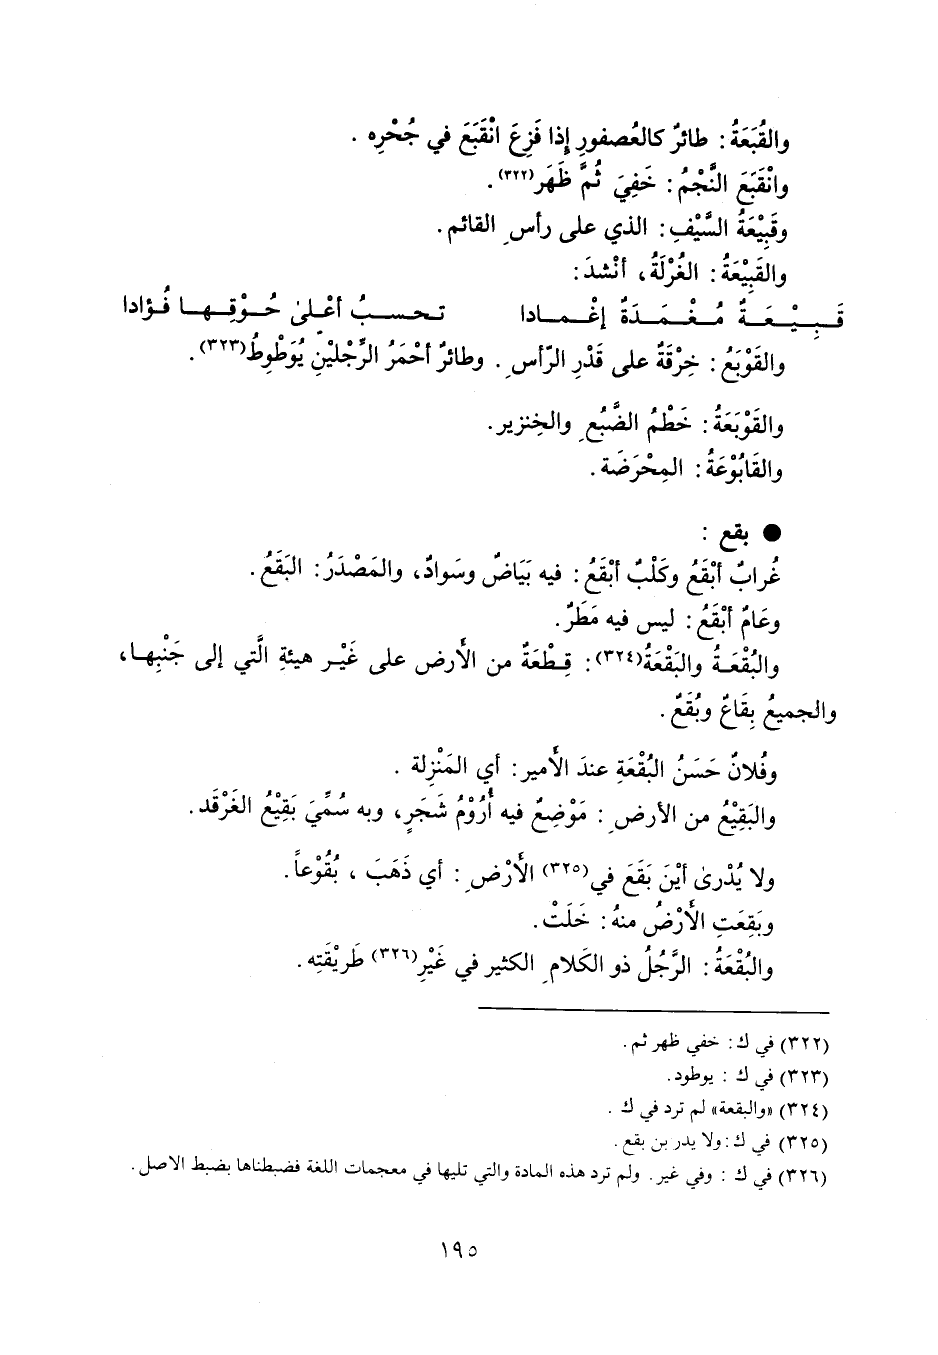 والقُبَعَةُ: طائرٌ كالعُصفورِ إِذا فَزِعَ انْقَبَعَ في جُحْرِه .
وانْقَبَعَ النَّجْمُ: خَفِيَ ثُمَّ ظَهَر(٣٢٢).
وقَبِيْعَةُ السَّيْفِ: الذي على رأسِ القائم.
والقَبِيْعَةُ: الغُرْلَةُ، أنْشدَ:
قَـبِـيْـعَـةٌ مُـغْـمَـدَةٌ إغْـمـادا تـحـسـبُ أعْـلىٰ حُـوْقِـهـا فُـؤادا
والقَوْبَعُ: خِرْقَةٌ على قَدْرِ الرّأسِ. وطائرٌ أحْمَرُ الرِّجْلَيْنِ يُوَطْوِطُ(٣٢٣).
والقَوْبَعَةُ: خَطْمُ الضَّبُعِ والخِنزير.
والقَابُوْعَةُ: المِحْرَضَة.
● بقع :
غُرابٌ أبْقَعُ وكَلْبٌ أبْقَعُ: فيه بَيَاضٌ وسَوادٌ، والمَصْدَرُ: البَقَعُ.
وعَامٌ أبْقَعُ: ليس فيه مَطَرٌ.
والبُقْعَـةُ والبَقْعَةُ(٣٢٤): قِـطْعَةٌ من الأَرض على غَيْـر هيئةِ الَّتي إلى جَنْبِهـا،
والجميعُ بِقَاعٌ وبُقَعٌ.
وفُلانٌ حَسَنُ البُقْعَةِ عندَ الأَمير: أي المَنْزِلة .
والبَقِيْعُ من الأرضِ: مَوْضِعٌ فيه أُرُوْمُ شَجَرٍ، وبه سُمِّيَ بَقِيْعُ الغَرْقَد.
ولا يُدْرىٰ أيْنَ بَقَعَ في(٣٢٥) الأَرْضِ: أي ذَهَبَ ، بُقُوْعاً.
وبَقِعَتِ الأَرْضُ منهُ: خَلَتْ.
والبُقْعَةُ: الرَّجُلُ ذو الكَلامِ الكثير في غَيْرِ(٣٢٦) طَرِيْقَتِه.
(٣٢٢) في ك: خفي ظهر ثم.
(٣٢٣) في ك : يوطود.
(٣٢٤) «والبقعة» لم ترد في ك .
(٣٢٥) في ك: ولا يدر بن بقع.
(٣٢٦) في ك : وفي غير. ولم ترد هذه المادة والتي تليها في معجمات اللغة فضبطناها بضبط الاصل.
١٩٥